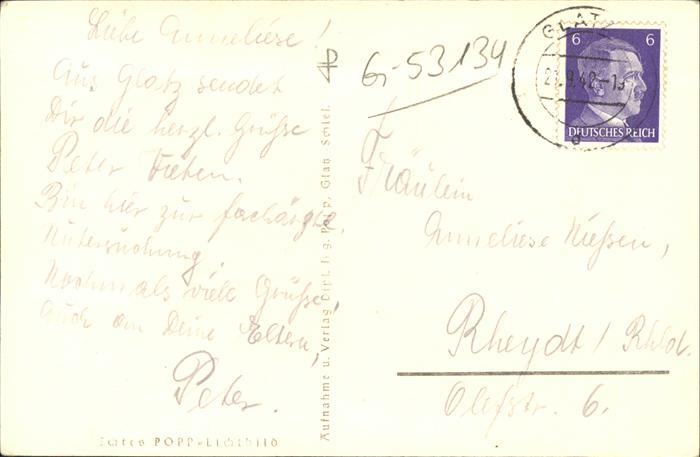 Liebe Anneliese!
Aus Glatz sendet
Dir die herzl. Grüsse
Peter Vieten.
Bin hier zur fachärztl.
Untersuchung.
Nochmals viele Grüsse,
auch an Deine Eltern,
Peter.
Echtes POPP-Lichtbild
Aufnahme u. Verlag Dipl. Ing. Popp, Glatz Schles.
G-53134
GLATZ
6 6
DEUTSCHES REICH
Fräulein
Anneliese Nießen,
Rheydt / Rhld.
Olefstr. 6.